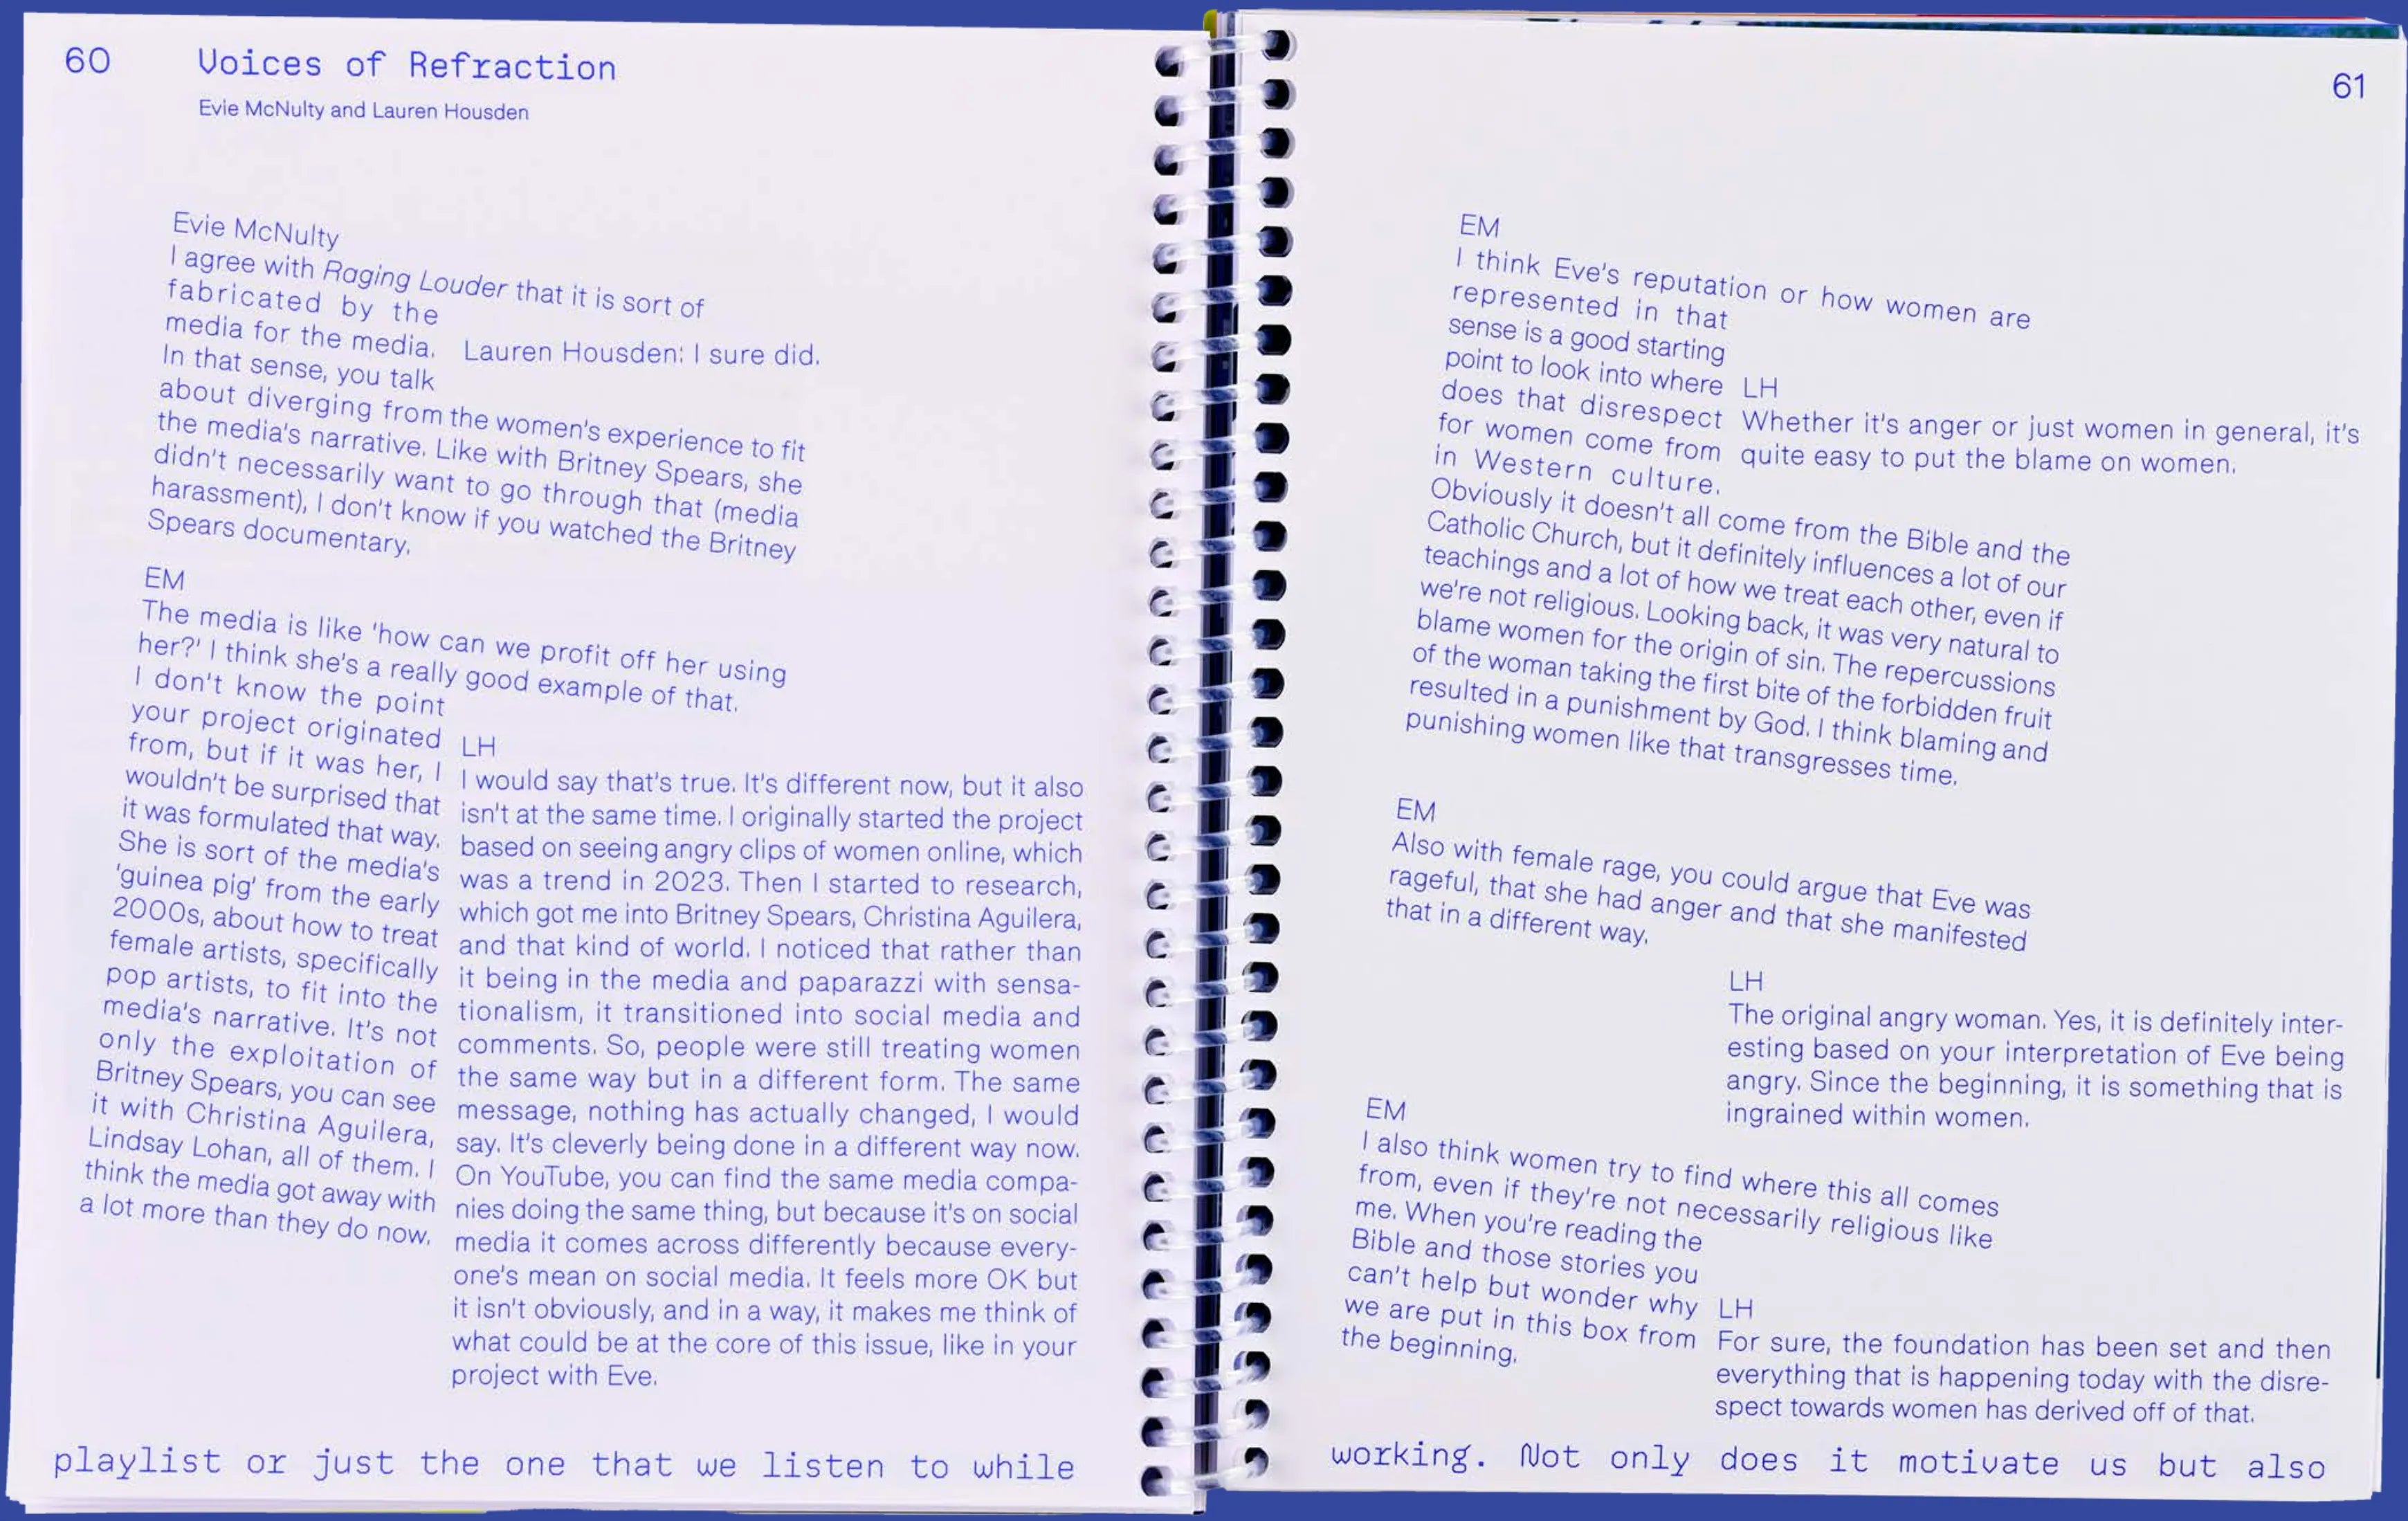 60
Voices of Refraction
Evie McNulty and Lauren Housden
Evie McNulty
I agree with Raging Louder that it is sort of
fabricated by the
media for the media.
In that sense, you talk
about diverging from the women's experience to fit
the media's narrative. Like with Britney Spears, she
didn't necessarily want to go through that (media
harassment), I don't know if you watched the Britney
Spears documentary.
Lauren Housden: I sure did.
EM
The media is like 'how can we profit off her using
her?' I think she's a really good example of that.
I don't know the point
your project originated
from, but if it was her, I
wouldn't be surprised that
it was formulated that way.
She is sort of the media's
'guinea pig' from the early
2000s, about how to treat
female artists, specifically
pop artists, to fit into the
media's narrative. It's not
only the exploitation of
Britney Spears, you can see
it with Christina Aguilera,
Lindsay Lohan, all of them. I
think the media got away with
a lot more than they do now.
LH
I would say that's true. It's different now, but it also
isn't at the same time. I originally started the project
based on seeing angry clips of women online, which
was a trend in 2023. Then I started to research,
which got me into Britney Spears, Christina Aguilera,
and that kind of world. I noticed that rather than
it being in the media and paparazzi with sensa-
tionalism, it transitioned into social media and
comments. So, people were still treating women
the same way but in a different form. The same
message, nothing has actually changed, I would
say. It's cleverly being done in a different way now.
On YouTube, you can find the same media compa-
nies doing the same thing, but because it's on social
media it comes across differently because every-
one's mean on social media. It feels more OK but
it isn't obviously, and in a way, it makes me think of
what could be at the core of this issue, like in your
project with Eve.
playlist or just the one that we listen to while
61
EM
I think Eve's reputation or how women are
represented in that
sense is a good starting
point to look into where
does that disrespect
for women come from
in Western culture.
Obviously it doesn't all come from the Bible and the
Catholic Church, but it definitely influences a lot of our
teachings and a lot of how we treat each other, even if
we're not religious. Looking back, it was very natural to
blame women for the origin of sin. The repercussions
of the woman taking the first bite of the forbidden fruit
resulted in a punishment by God. I think blaming and
punishing women like that transgresses time.
LH
Whether it's anger or just women in general, it's
quite easy to put the blame on women.
EM
Also with female rage, you could argue that Eve was
rageful, that she had anger and that she manifested
that in a different way.
LH
The original angry woman. Yes, it is definitely inter-
esting based on your interpretation of Eve being
angry. Since the beginning, it is something that is
ingrained within women.
EM
I also think women try to find where this all comes
from, even if they're not necessarily religious like
me. When you're reading the
Bible and those stories you
can't help but wonder why
we are put in this box from
the beginning.
LH
For sure, the foundation has been set and then
everything that is happening today with the disre-
spect towards women has derived off of that.
working. Not only does it motivate us but also